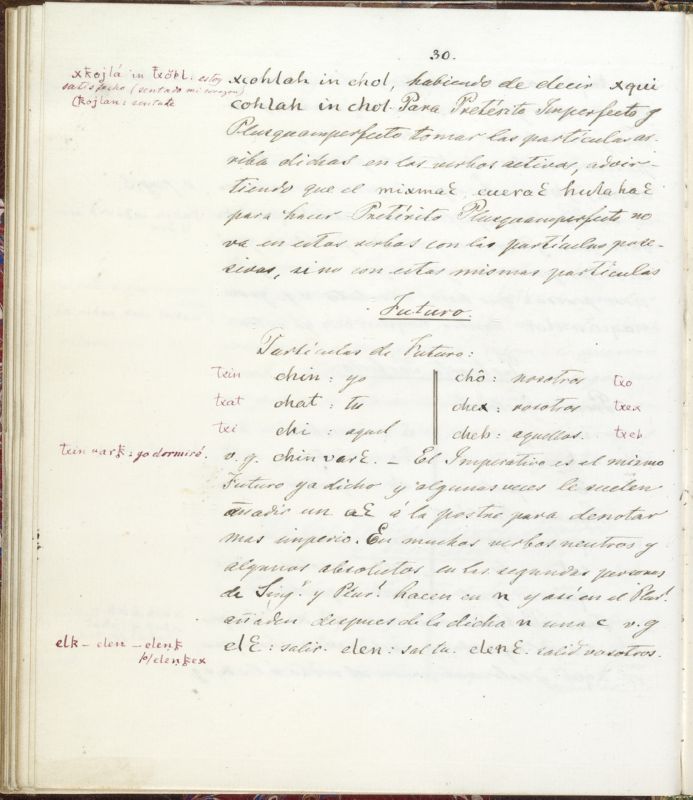 30.
xkojlá in txőkl: estoy
satisfecho (sentado mi corazon)
(kojlan: sentado
xcohlah in chol, habiendo de decir xqui
cohlah in chol. Para Pretérito Imperfecto y
Plusquamperfecto tomar las partículas ar-
riba dichas en los verbos activos, advir-
tiendo que el mixmaꜫ cueraꜫ hulahaꜫ
para hacer Pretérito Plusquamperfecto no
va en estos verbos con las partículas pose-
sivas, sino con estas mismas partículas
Futuro.
Partículas de Futuro:
txin chin: yo chô: nosotros txo
txat chat: tu chex: vosotros txex
txi chi: aquel cheb: aquellos. txeb
txin vark: yo dormiré.
v.g. chin varꜫ. – El Imperativo es el mismo
Futuro ya dicho y algunas veces le suelen
añadir un aꜫ á la postre para denotar
mas imperio. En muchos verbos neutros y
algunos absolutos en las segundas personas
de Sing.r y Plur.l hacen en n y asi en el Plur.l
añaden despues de la dicha n una c v.g
elk – elen – elenk
p/elenkex
elꜫ: salir. elen: sal tu. elenꜫ: salid vosotros.